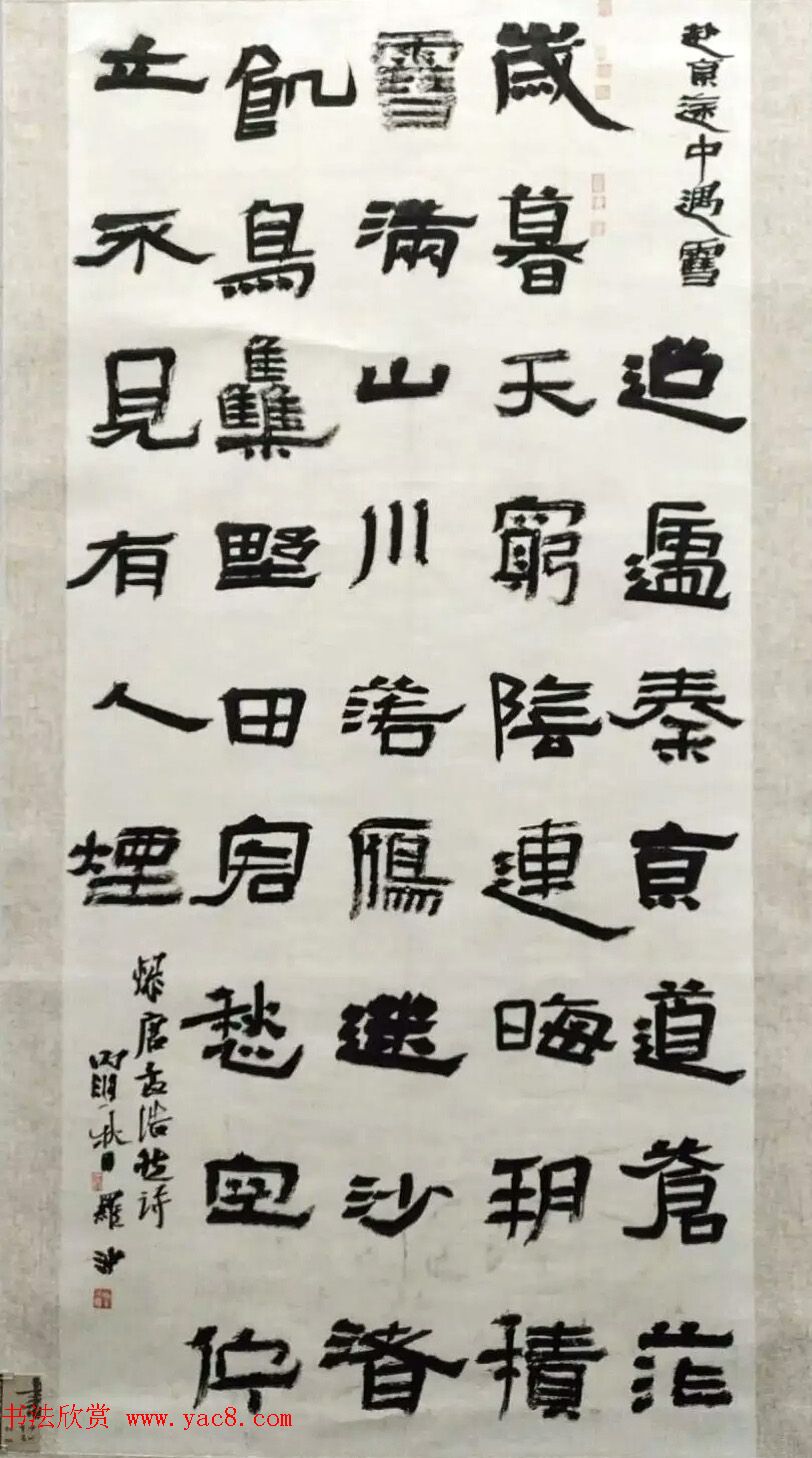 赴京途中遇雪
迢遞秦京道蒼茫
歲暮天窮陰連晦朔積
雪滿山川落雁迷沙渚
飢鳥雧野田客愁空佇
立不見有人煙
錄唐孟浩然詩
秋
羅
书法欣赏 www.yac8.com